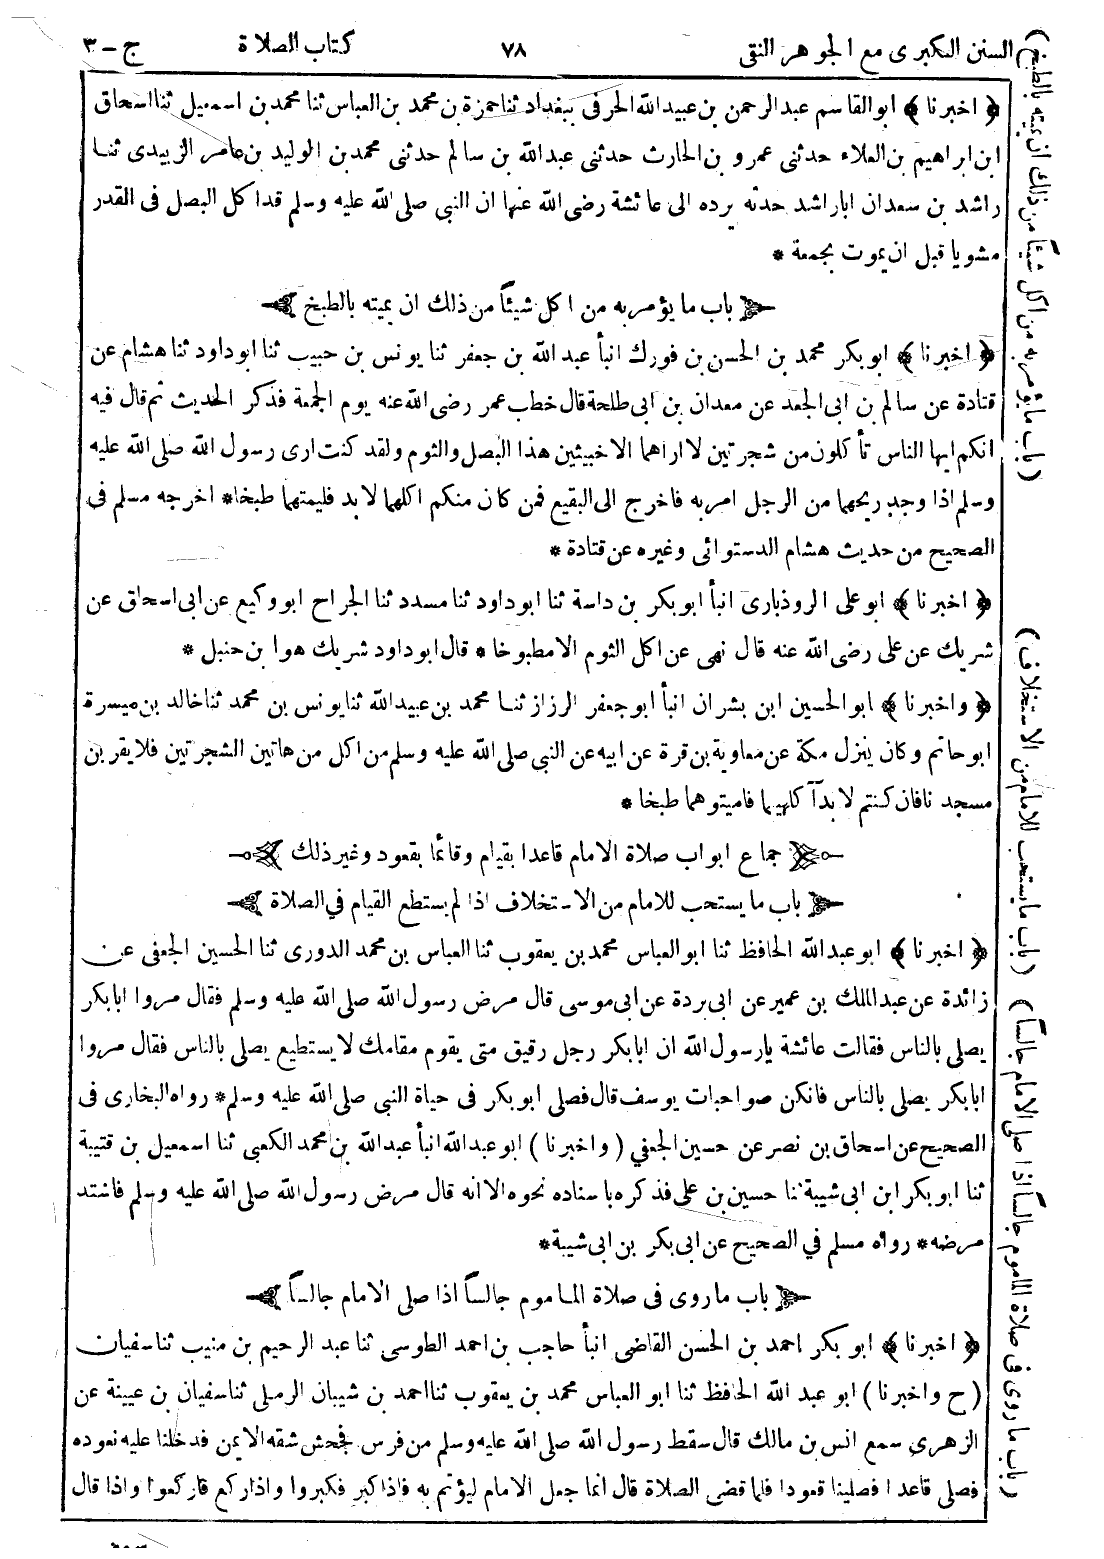 السنن الكبرى مع الجوهر النقى ٧٨ كتاب الصلاة ج - ٣
﴿ اخبرنا ﴾ ابو القاسم عبد الرحمن بن عبيد الله الحرفى ببغداد ثنا حمزة بن محمد بن العباس ثنا محمد بن اسمعيل ثنا اسحاق
ابن ابراهيم بن العلاء حدثنى عمرو بن الحارث حدثنى عبد الله بن سالم حدثنى محمد بن الوليد بن عامر الزبيدى ثنا
راشد بن سعد ان ابا راشد حدثه يرده الى عائشة رضى الله عنها ان النبى صلى الله عليه وسلم قد اكل البصل فى القدر
مشويا قبل ان يموت بجمعة *
باب ما يؤمر به من اكل شيئاً من ذلك ان يميته بالطبخ
﴿ اخبرنا ﴾ ابو بكر محمد بن الحسن بن فورك انبأ عبد الله بن جعفر ثنا يونس بن حبيب ثنا ابو داود ثنا هشام عن
قتادة عن سالم بن ابى الجعد عن معدان بن ابى طلحة قال خطب عمر رضى الله عنه يوم الجمعة فذكر الحديث ثم قال فيه
انكم ايها الناس تأكلون من شجرتين لا اراهما الا خبيثين هذا البصل والثوم ولقد كنت ارى رسول الله صلى الله عليه
وسلم اذا وجد ريحهما من الرجل امر به فاخرج الى البقيع فمن كان منكم اكلهما لا بد فليمتهما طبخا * اخرجه مسلم فى
الصحيح من حديث هشام الدستوائى وغيره عن قتادة *
﴿ اخبرنا ﴾ ابو على الروذبارى انبأ ابو بكر بن داسة ثنا ابو داود ثنا مسدد ثنا الجراح ابو وكيع عن ابى اسحاق عن
شريك عن على رضى الله عنه قال نهى عن اكل الثوم الا مطبوخا * قال ابو داود شريك هو ابن حنبل *
﴿ واخبرنا ﴾ ابو الحسين ابن بشران انبأ ابو جعفر الرزاز ثنا محمد بن عبيد الله ثنا يونس بن محمد ثنا خالد بن ميسرة
ابو حاتم وكان ينزل مكة عن معاوية بن قرة عن ابيه عن النبى صلى الله عليه وسلم من اكل من هاتين الشجرتين فلا يقربن
مسجدنا فان كنتم لا بد آكليهما فاميتوهما طبخا *
جماع ابواب صلاة الامام قاعدا بقيام وقائما بقعود وغير ذلك
باب ما يستحب للامام من الاستخلاف اذا لم يستطع القيام في الصلاة
﴿ اخبرنا ﴾ ابو عبد الله الحافظ ثنا ابو العباس محمد بن يعقوب ثنا العباس بن محمد الدورى ثنا الحسين الجعفى عن
زائدة عن عبد الملك بن عمير عن ابى بردة عن ابى موسى قال مرض رسول الله صلى الله عليه وسلم فقال مروا ابا بكر
يصلى بالناس فقالت عائشة يا رسول الله ان ابا بكر رجل رقيق متى يقوم مقامك لا يستطيع يصلى بالناس فقال مروا
ابا بكر يصلى بالناس فانكن صواحبات يوسف قال فصلى ابو بكر فى حياة النبى صلى الله عليه وسلم * رواه البخارى فى
الصحيح عن اسحاق بن نصر عن حسين الجعفي ( واخبرنا ) ابو عبد الله انبأ عبد الله بن محمد الكعبى ثنا اسمعيل بن قتيبة
ثنا ابو بكر ابن ابى شيبة ثنا حسين بن على فذكره باسناده نحوه الا انه قال مرض رسول الله صلى الله عليه وسلم فاشتد
مرضه * رواه مسلم في الصحيح عن ابى بكر بن ابى شيبة *
باب ما روى فى صلاة الماموم جالساً اذا صلى الامام جالساً
﴿ اخبرنا ﴾ ابو بكر احمد بن الحسن القاضى انبأ حاجب بن احمد الطوسى ثنا عبد الرحيم بن منيب ثنا سفيان
( ح واخبرنا ) ابو عبد الله الحافظ ثنا ابو العباس محمد بن يعقوب ثنا احمد بن شيبان الرملى ثنا سفيان بن عيينة عن
الزهرى سمع انس بن مالك قال سقط رسول الله صلى الله عليه وسلم من فرس فجحش شقه الايمن فدخلنا عليه نعوده
فصلى قاعدا فصلينا قعودا فلما قضى الصلاة قال انما جعل الامام ليؤتم به فاذا كبر فكبروا واذا ركع فاركعوا واذا قال
( باب ما يؤمر به من اكل شيئاً من ذلك ان يميته بالطبخ )
( باب ما يستحب للامام من الاستخلاف )
( باب ما روى فى صلاة الماموم جالساً اذا صلى الامام جالساً )